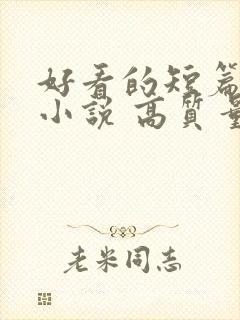 好看的短篇
小説 高質量
老米同志